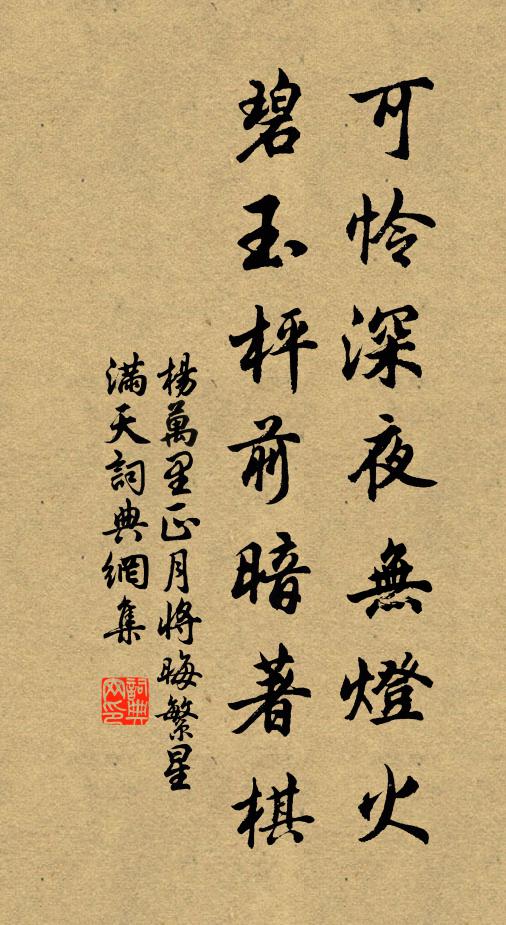 可憐深夜無燈火
碧玉枰前暗著棋
楊萬里正月將晦繁星
滿天詞典網集
詞典
网印